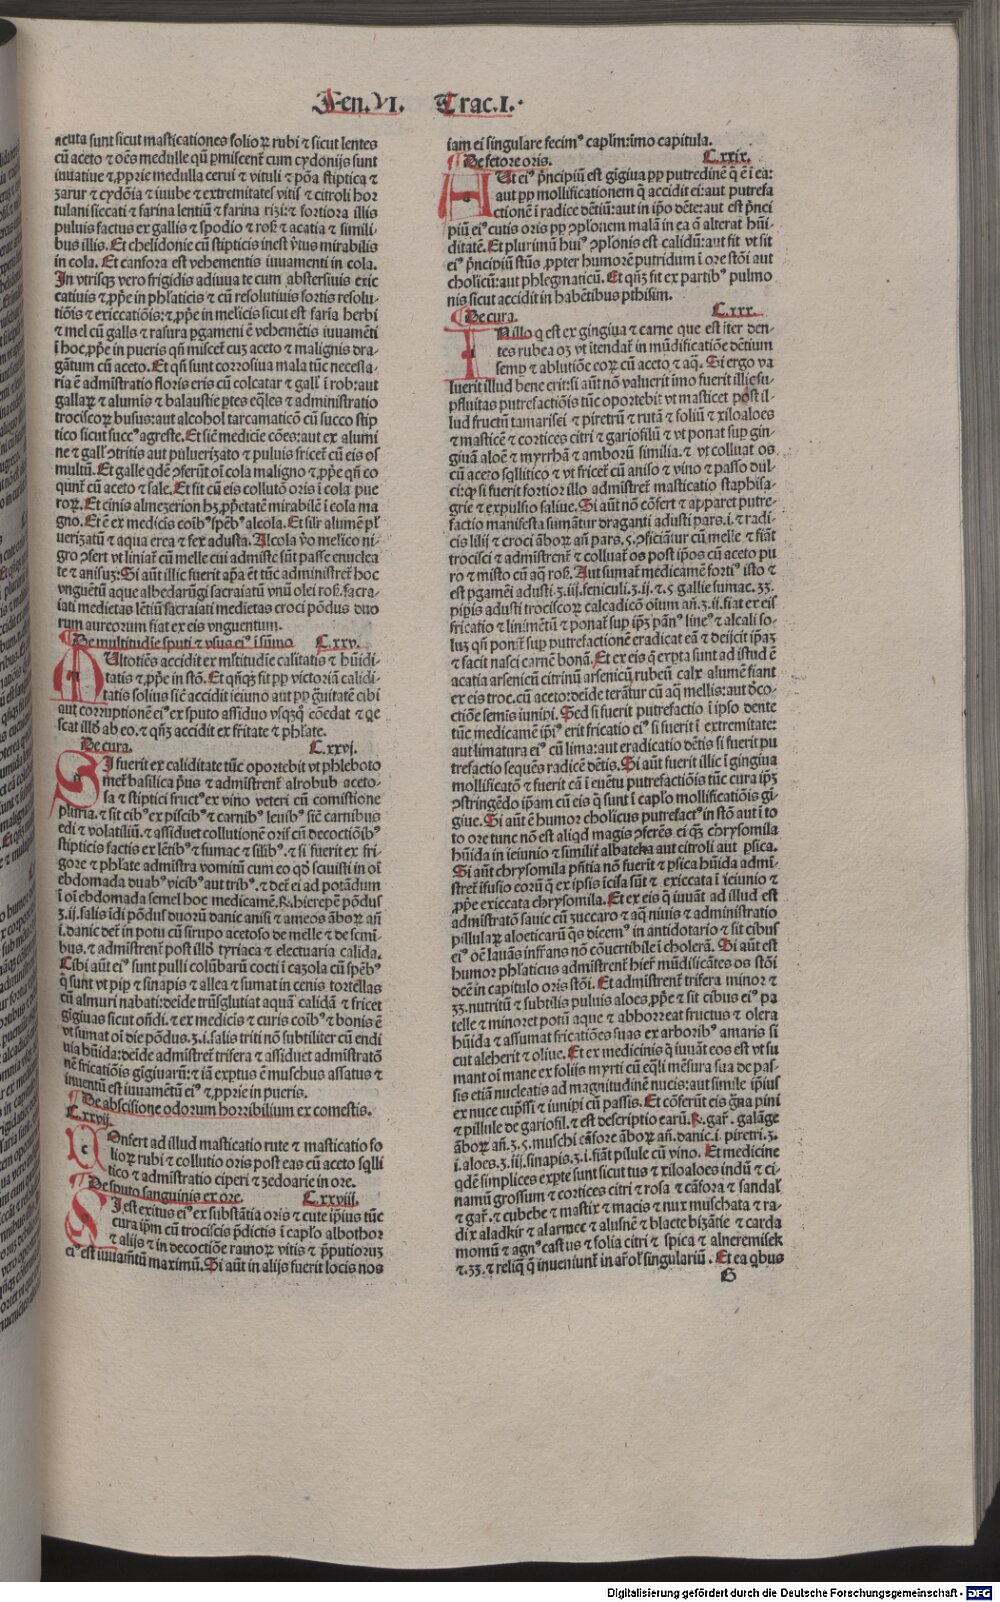 Fen.VI. Trac.I.
acuta sunt sicut masticationes folioꝝ rubi ⁊ sicut lentes
cū aceto ⁊ oēs medulle qn̄ ꝑmiscent̄ cum cydonijs sunt
iuuatiue ⁊ ꝓprie medulla cerui ⁊ vituli ⁊ pōa stiptica ⁊
zarur ⁊ cydōia ⁊ iuiube ⁊ extremitates vitis ⁊ citroli hor
tulani siccati ⁊ farina lentiū ⁊ farina rizi: ⁊ fortiora illis
puluis factus ex gallis ⁊ spodio ⁊ roẜ ⁊ acatia ⁊ simili-
bus illis. Et chelidonie cū stipticis inest v̓tus mirabilis
in cola. Et canfora est vehementis iuuamenti in cola.
In vtrisqꝫ vero frigidis adiuua te cum abstersiuis exic
catiuis ⁊ ꝓp̄e in ph̄laticis ⁊ cū resolutiuis fortis resolu-
tiōis ⁊ exiccatiōis: ⁊ ꝓp̄e in melicis sicut est faria herbi
⁊ mel cū gallꝭ ⁊ rasura ꝑgameni ē vehemētis iuuamēti
ī hoc ꝓp̄e in pueris qn̄ miscet̄ cuꝫ aceto ⁊ malignis dra-
gātum cū aceto. Et qn̄ sunt corrosiua mala tūc necessa-
ria ē admistratio floris eris cū colcatar ⁊ gallꝭ ī rob: aut
gallaꝝ ⁊ alumīs ⁊ balaustie ꝑtes eq̄les ⁊ administratio
trociscoꝝ busus: aut alcohol tarcamaticō cū succo stip
tico sicut succꝰ agreste. Et sic̄ medicīe cōes: aut ex alumi
ne ⁊ gallꝭ ↄtritis aut puluerizato ⁊ puluis fricet̄ cū eis os
multū. Et galle qdē ↄferūt oī cola maligno ⁊ ꝓp̄e qn̄ co
qunt̄ cū aceto ⁊ sale. Et fit cū eis collutō oris ī cola pue
roꝝ. Et cinis almezerion hꝫ ꝓp̄etatē mirabilē ī cola ma
gno. Et ē ex medicis coībꝰ sp̄ēbꝰ alcola. Et silr alumē pl̄
uerizatū ⁊ aqua erea ⁊ fex adusta. Alcola v̓o melico ni-
gro ↄfert vt liniat̄ cū melle cui admiste sūt passe enuclea
te ⁊ anisuꝫ: Si aūt illic fuerit ap̄a ēt tūc administret̄ hoc
vnguētū aque albedarūgi sacraiatū vnū olei roẜ. sacra-
iati medietas lētiū sacraiati medietas croci pōdus duo
rum aureorum fiat ex eis vnguentum.
De multitudīe sputi ⁊ vsus eiꝰ ī sūmo C.xxv.
Multotiēs accidit ex ml̄titudīe caliditatis ⁊ hūidi-
tatis ⁊ ꝓp̄e in stō. Et qn̄qꝫ fit pp victoriā calidi-
tatis solius sic̄ accidit ieiuno aut pp gͣuitatē cibi
aut corruptionē eiꝰ ex sputo assiduo vsqꝫq̄ cōedat ⁊ qe
scat illd̓ ab eo. ⁊ qn̄qꝫ accidit ex fr̄itate ⁊ ph̄late.
De cura. C.xxvj.
Si fuerit ex caliditate tūc oportebit vt phleboto
met̄ basilica p̓us ⁊ admistrent̄ alrobub aceto-
sa ⁊ stiptici fructꝰ ex vino veteri cū comistione
pluria. ⁊ sit cibꝰ ex piscibꝰ ⁊ carnibꝰ leuibꝰ sic̄ carnibus
edi ⁊ volatiliū. ⁊ assiduet collutionē oris cū decoctiōibꝰ
stipticis factis ex lētibꝰ ⁊ sumac ⁊ silibꝰ. ⁊ si fuerit ex fri-
gore ⁊ ph̄late admistra vomitū cum eo qd̓ sciuisti in oī
ebdomada duabꝰ vicibꝰ aut tribꝰ. ⁊ det̄ ei ad potādum
ī oī ebdomada semel hoc medicamē. ℞. hierepē pōdus
ʒ.ij. salis īdi pōdus duorū danic anisi ⁊ ameos āboꝝ an̄
i. danic det̄ in potu cū sirupo acetoso de melle ⁊ de semi-
bus. ⁊ admistrent̄ post illd̓ tyriaca ⁊ electuaria calida.
Cibi aūt eiꝰ sunt pulli colūbarū cocti ī cazola cū sp̄ēbꝰ
q̄ sunt vt pip ⁊ sinapis ⁊ allea ⁊ sumat in cenis tortellas
cū almuri nabati: deide trāsglutiat aquā calidā ⁊ fricet
gīgiuas sicut on̄di. ⁊ ex medicis ⁊ curis coībꝰ ⁊ bonis ē
vt sumat oī die pōdus.ʒ.i. salis triti nō subtiliter cū endi
uia hūida: deinde admistret̄ trifera ⁊ assiduet admīstratō
nē fricatiōis gīgiuarū: ⁊ iā exꝑtus ē muschus assatus ⁊
inuentū est iuuamētū eiꝰ ⁊ ꝓprie in pueris.
De abscisione odorum horribilium ex comestis.
C.xxvij.
Confert ad illud masticatio rute ⁊ masticatio fo
lioꝝ rubi ⁊ collutio oris post eas cū aceto sqlli
tico ⁊ admistratio ciperi ⁊ zedoarie in ore.
De sputo sanguinis ex ore. C.xxviij.
Si est exitus eiꝰ ex substātia oris ⁊ cute ip̄ius tūc
cura ip̄m cū trociscis p̄dictis ī caplo albothor
⁊ alijs ⁊ in decoctiōe ramoꝝ vitis ⁊ p̄putioruꝫ
eiꝰ est iuuam̄tū maximū. Si aūt in alijs fuerit locis nos
iam ei singulare fecimꝰ caplm: īmo capitula.
De fetore oris. C.xxix.
Aut eiꝰ p̓ncipiū est gīgiua pp putredinē q̄ ē ī ea:
aut pp mollificationem q̄ accidit ei: aut putrefa
ctionē ī radice dētiū: aut in ip̄o dēte: aut est p̓nci
piū eiꝰ cutis oris pp ↄplonem malā in ea q̄ alterat hūi-
ditatē. Et plurimū huiꝰ ↄplōnis est calidū: aut fit vt sit
eiꝰ p̓ncipiū stūs ꝓpter humorē putridum ī ore stōi aut
cholicū: aut phlegmaticū. Et qn̄qꝫ fit ex partibꝰ pulmo
nis sicut accidit in habētibus ptisim.
De cura. C.xxx.
In illo q est ex gingiua ⁊ carne que est īter den-
tes rubea oꝫ vt ītendat̄ in mūdificatiōe dētium
semꝑ ⁊ ablutiōe eoꝝ cū aceto ⁊ aq̄. Si ergo va
luerit illud bene erit: si aūt nō valuerit īmo fuerit illic su-
ꝑfluitas putrefactiōis tūc oportebit vt masticet post il-
lud fructū tamarisci ⁊ piretrū ⁊ rutā ⁊ foliū ⁊ xiloaloes
⁊ masticē ⁊ cortices citri ⁊ gariofilū ⁊ vt ponat suꝑ gin-
giuā aloē ⁊ myrrhā ⁊ amborū similia. ⁊ vt colluat os
cū aceto sqllitico ⁊ vt fricet̄ cū aniso ⁊ vino ⁊ passo dul
ci: qꝫ si fuerit fortior illo admistret̄ masticatio staphisa-
grie ⁊ expulsio saliue. Si aūt nō cōfert ⁊ apparet putre-
factio manifesta sumātur draganti adusti pars.i. ⁊ radi-
cis lilij ⁊ croci āboꝝ an̄ pars.ꝭ. ↄficiāt̄ur cū melle ⁊ fiāt
trocisci ⁊ admistrent̄ ⁊ colluat̄ os post ip̄os cū aceto pu
ro ⁊ misto cū aq̄ roẜ. Aut sumat̄ medicamē fortiꝰ isto ⁊
est pgamēi adusti.ʒ.iij. feniculi.ʒ.ij. ⁊.ꝭ. gallie sumac.ʒʒ.
pipis adusti trociscoꝝ calcadicō oīum an̄.ʒ.ij. fiat ex eis
fricatio ⁊ linimētū ⁊ ponat̄ suꝑ ip̄ꝫ pānꝰ lineꝰ ⁊ alcali so-
luꝫ qn̄ ponit̄ suꝑ putrefactionē eradicat eā ⁊ deijcit ip̄aꝫ
⁊ facit nasci carnē bonā. Et ex eis q̄ expta sunt ad istud ē
acatia arsenicū citrinū arsenicū rubeū calx alumē fiant
ex eis troc. cū aceto: deide terāt̄ur cū aq̄ mellis: aut deco-
ctiōe semīs iunipi. Sed si fuerit putrefactio ī ipso dente
tūc medicamē ip̄iꝰ erit fricatio eiꝰ si fuerit ī extremitate:
aut limatura eiꝰ cū lima: aut eradicatio dētis si fuerit pu
trefactio sequēs radicē dētis. Si aūt fuerit illic ī gingiua
mollificatō ⁊ fuerit eā ī euētu putrefactiōis tūc cura ip̄ꝫ
ↄstringēdo ip̄am cū eis q̄ sunt ī caplo mollificatiōis gī-
giue. Si aūt ē humor cholicus putrefactꝰ in stō aut ī to
to ore tunc nō est aliqd magis ↄferēs ei qꝫ chrysomila
hūida in ieiunio ⁊ similit̄ albateka aut citroli aut ꝑsica.
Si aūt chrysomila pn̄tia nō fuerit ⁊ ꝑsica hūida admi-
stret̄ īfusio eorū q̄ ex ipsis īcisa sūt ⁊ exiccata ī ieiunio ⁊
ꝓp̄e exiccata chrysomila. Et ex eis q̄ iuuāt ad illud est
admistratō sauic cū zuccaro ⁊ aq̄ niuis ⁊ administratio
pillulaꝝ aloeticarū qs dicemꝰ in antidotario ⁊ sit cibus
eiꝰ oē lauās infrās nō cōuertibile ī cholerā. Si aūt est
humor ph̄laticus admistrent̄ hierꝭ mūdificātes os stōi
dcē in capitulo oris stōi. Et admistrent̄ trifera minor ⁊
ʒʒ. nutritū ⁊ subtilis puluis aloes ꝓp̄e ⁊ sit cibus eiꝰ pa
telle ⁊ minoret potū aque ⁊ abhorreat fructus ⁊ olera
hūida ⁊ assumat fricatiōes suas ex arboribꝰ amaris si
cut aleherit ⁊ oliue. Et ex medicinis q̄ iuuāt eos est vt su
mant oī mane ex folijs myrti cū eqli mēsura sua de pas-
sis etiā nucleatis ad magnitudinē nucis: aut simile ip̄ius
ex nuce cup̄ssi ⁊ iunipi cū passis. Et cōferūt eis gͣna pini
⁊ pillule de gariofil. ⁊ est descriptio earū. ℞. gar̄. galāge
āboꝝ an̄.ʒ.ꝭ. muschi cāfore āboꝝ an̄. danic.i. piretri.ʒ.
i. aloes.ʒ.iij. sinapis.ʒ.i. fiāt pillule cū vino. Et medicine
qdē simplices expte sunt sicut tus ⁊ xiloaloes indū ⁊ ci-
namū grossum ⁊ cortices citri ⁊ rosa ⁊ cāfora ⁊ sandaꝉ
⁊ gar̄. ⁊ cubebe ⁊ mastix ⁊ macis ⁊ nux muschata ⁊ ra-
dix aladkir ⁊ alarmec ⁊ alusnē ⁊ blacte bizātie ⁊ carda
momū ⁊ agnꝰ castus ⁊ folia citri ⁊ spica ⁊ alneremisek
⁊.ʒʒ. ⁊ reliq̄ q̄ inueniunt̄ in ar̄oꝉ singulariū. Et ea qbus
G
Digitalisierung gefördert durch die Deutsche Forschungsgemeinschaft - DFG